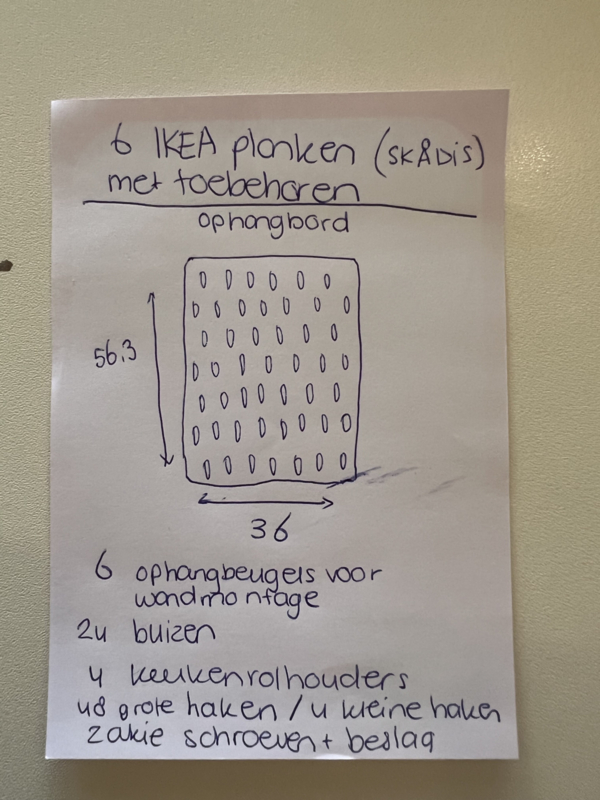 6 IKEA planken (SKÅDIS)
met toebehoren
ophangbord
56.3
36
6 ophangbeugels voor
wandmontage
24 buizen
4 keukenrolhouders
48 grote haken / 4 kleine haken
zakje schroeven + beslag